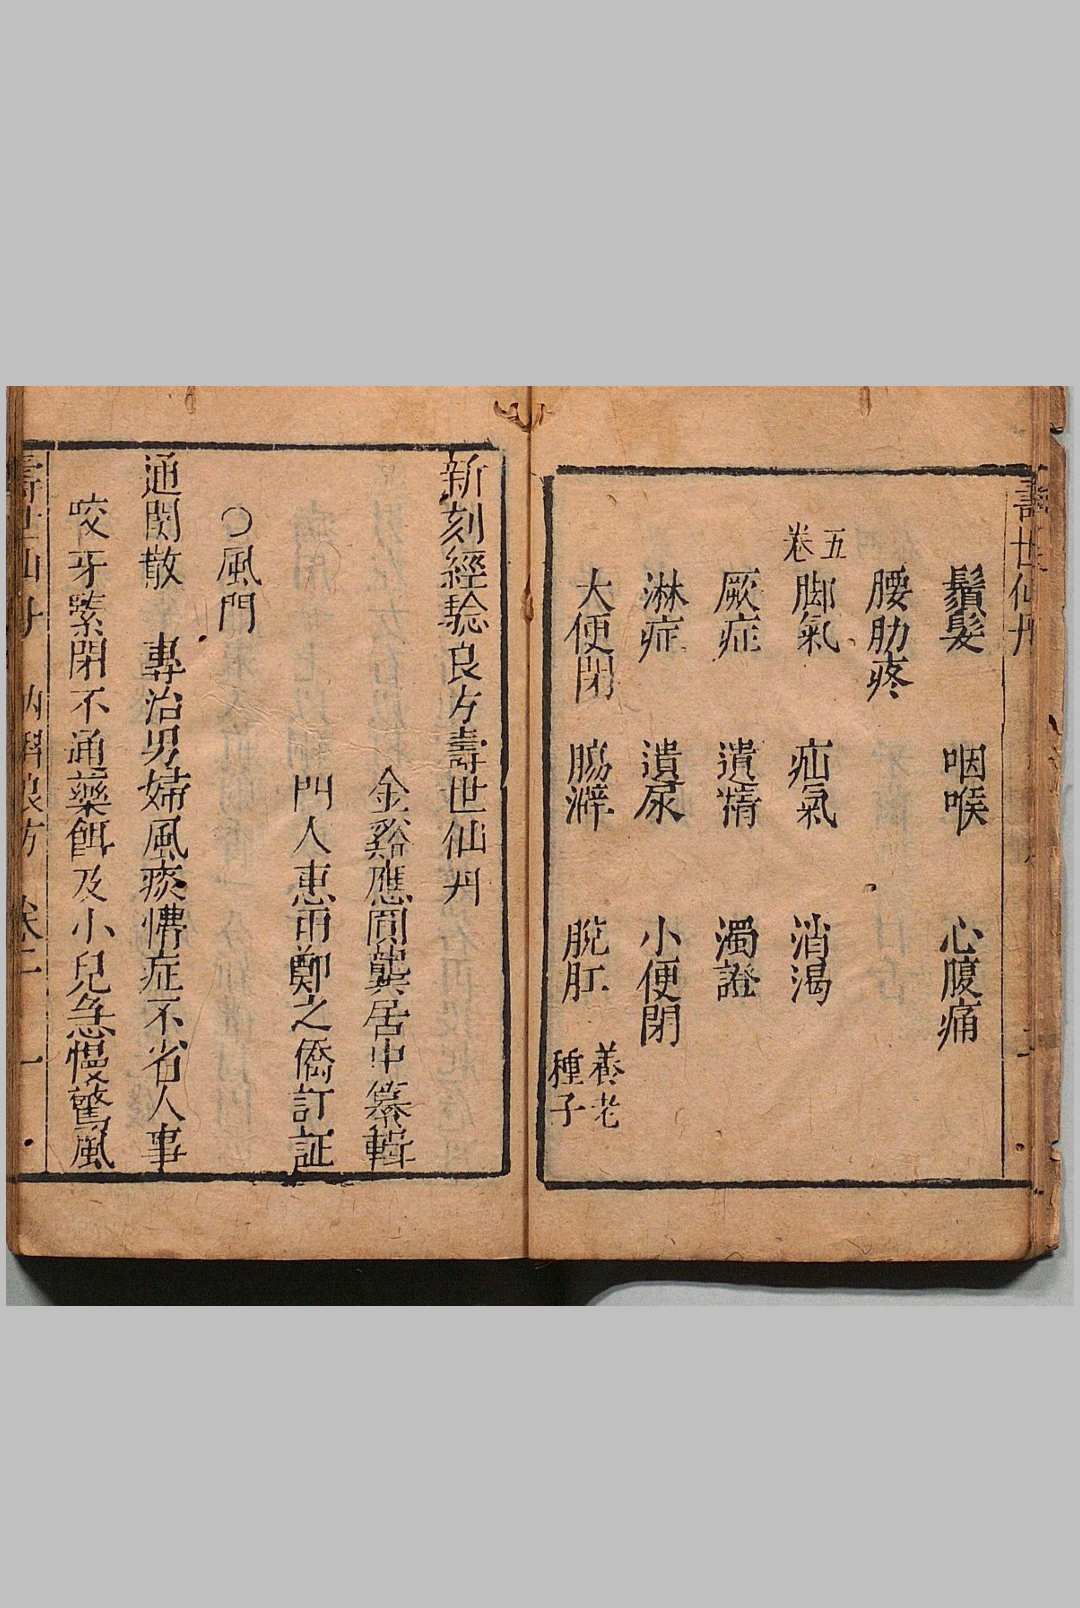 壽世仙丹
鬚髮 咽喉 心腹痛
腰肋疼
卷五
脚氣 疝氣 消渴
厥症 遺精 濁證
淋症 遺尿 小便閉
大便閉 腸澼 脫肛 養老 種子
新刻經驗良方壽世仙丹
金谿應圓龔居中纂輯
門人惠雨鄭之僑訂証
○風門
通関散 專治男婦風痰慒症不省人事
咬牙緊閉不通藥餌及小兒急慢驚風
壽世仙丹 內科良方 卷 一